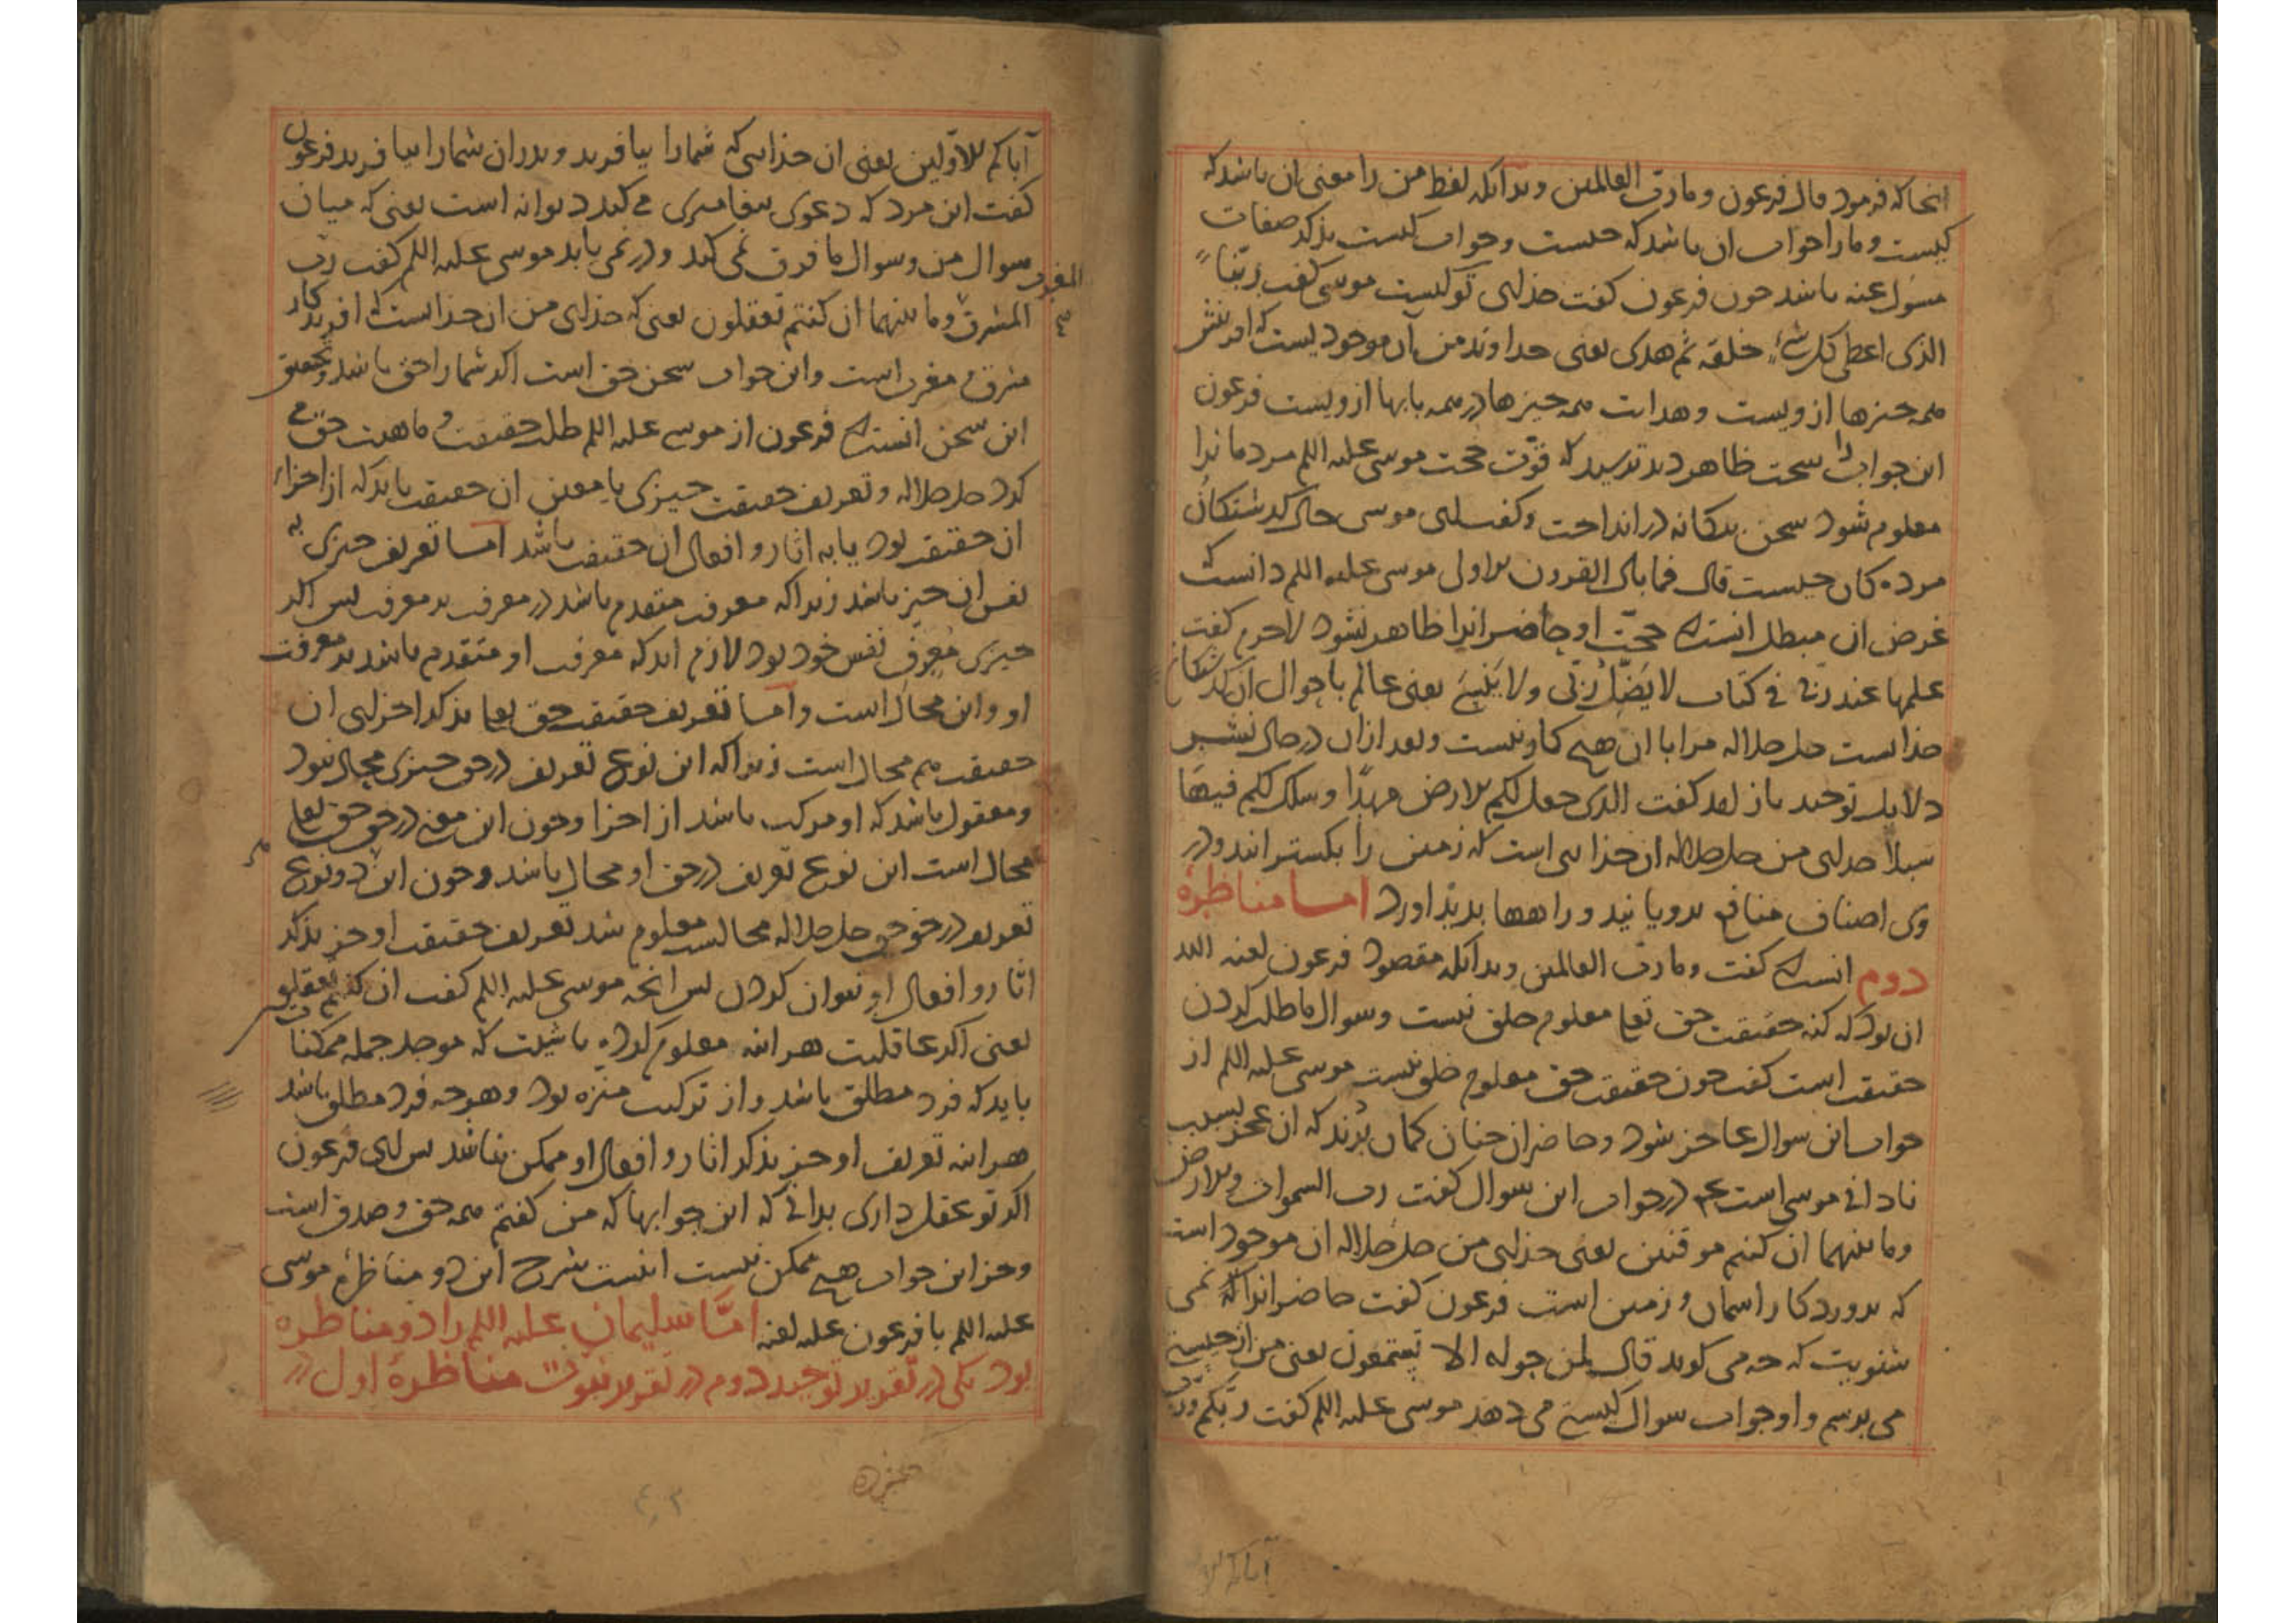 انجا که فرمود قال فرعون وما رب العالمین وبدانکه لفظ من را معنی ان باشد که
کیست وما را جواب ان باشد که چیست وجواب کیست بذکر صفات
مسول عنه باشد چون فرعون کفت خدای تو کیست موسی کفت ربنا
الذی اعطی کل شیء خلقه ثم هدی یعنی خداوند من آن موجودیست که افرینش
همه چیزها از ویست وهدایت همه چیزها در همه بابها از ویست فرعون
این جواب را سخت ظاهر دید ترسید که قوت حجت موسی علیه اللم مردمانرا
معلوم شود سخن بیکانه در انداخت وکفت ای موسی حال کذشتکان
مرده کان چیست قال فما بال القرون الاولی موسی علیه اللم دانست که
غرض ان مبطل انست که حجت او حاضرانرا ظاهر نشود لاجرم کفت
علمها عند ربی فی کتاب لا یضل ربی ولا ینسی یعنی عالم باحوال آن کذشتکان
خداست جل جلاله مرا با ان هیچ کار نیست وبعد ازان در حال بشیر
دلایل توحید باز امد کفت الذی جعل لکم الارض مهدا وسلک لکم فیها
سبلا خدای من جل جلاله ان خدایی است که زمین را بکسترانید ودر
وی اصناف منافع برویانید وراهها بدید اورد اما مناظرهٔ
دوم انست که کفت وما رب العالمین وبدانکه مقصود فرعون لعنه الله
ان بود که کنه حقیقت حق تعا معلوم خلق نیست وسوال ما طلب کردن
حقیقت است کفت چون حقیقت حق معلوم خلق نیست موسی علیه اللم از
جواب این سوال عاجز شود وحاضران چنان کمان برند که ان عجز بسبب
نادانی موسی است عم در جواب این سوال کفت رب السموات والارض
وما بینهما ان کنتم موقنین یعنی خدای من جل جلاله ان موجود است
که پروردکار اسمان وزمین است فرعون کفت حاضرانرا که نمی
شنویت که چه می کوید قال لمن حوله الا تستمعون یعنی من از چیستی
می پرسم واو جواب سوال کیستی می دهد موسی علیه اللم کفت ربکم ورب
آباکم الا
آباکم الاولین یعنی ان خدایی که شمارا بیافرید وپدران شمارا بیافرید فرعون
کفت این مرد که دعوی پیغامبری می کند دیوانه است یعنی که میان
سوال من وسوال ما فرق نمی کند ودر نمی یابد موسی علیه اللم کفت رب
المشرق وما بینهما ان کنتم تعقلون یعنی که خدای من ان خداست که افریدکار
المغرب
مشرق ومغرب است واین جواب سخن حق است اکر شمارا حق باشد وتحقیق
این سخن انست که فرعون از موسی علیه اللم طلب حقیقت وماهیت حق می
کرد جل جلاله وتعریف حقیقت چیزی یا بعین ان حقیقت باید که از اجزاء
ان حقیقت بود یا به اثار وافعال ان حقیقت باشد اما تعریف چیزی به
نفس ان چیز باشد زیرا که معرف متقدم باشد در معرفت بر معرف پس اکر
چیزی معرف نفس خود بود لازم اید که معرفت او متقدم باشد بر معرفت
او واین محال است واما تعریف حقیقت حق تعا بذکر اجزای ان
حقیقت هم محال است زیرا که این نوع تعریف در حق چیزی محال نبود
ومعقول باشد که او مرکب باشد از اجزا وچون این معنی در حق حق تعا
محال است این نوع تعریف در حق او محال باشد وچون این دو نوع
تعریف در حق حق جل جلاله محالست معلوم شد تعریف حقیقت او جز بذکر
اثار وافعال او نتوان کردن پس انچه موسی علیه اللم کفت ان کنتم تعقلون
یعنی اکر عاقلیت هر اینه معلوم کرده باشیت که موجد جمله ممکنات
باید که فرد مطلق باشد واز ترکیب منزه بود وهرچه فرد مطلق باشد
هر اینه تعریف او جز بذکر اثار وافعال او ممکن نباشد پس ای فرعون
اکر تو عقل داری بدانی که این جوابها که من کفتم همه حق وصدق است
وجز این جواب هیچ ممکن نیست اینست شرح این دو مناظرهٔ موسی
علیه اللم با فرعون علیه لعنه اما سلیمان علیه اللم را دو مناظره
بود یکی در تقریر توحید دوم در تقریر نبوت مناظرهٔ اول در